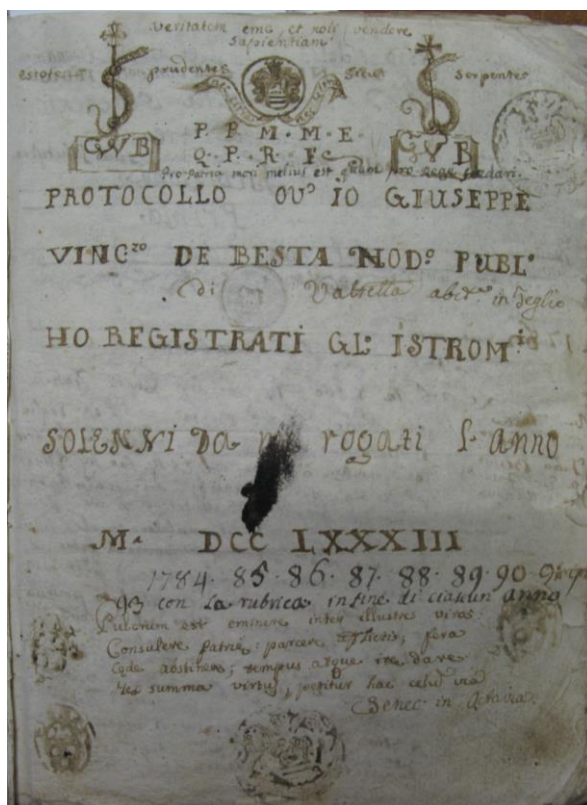 Veritatem eme, et noli vendere
Sapientiam
estote prudentes sicut serpentes
GVB GVB
P. P. M. M. E.
Q. P. R. F.
Pro Patria mori melius est quam pro Rege
PROTOCOLLO OVᵉ IO GIUSEPPE
VINCᶻᵒ DE BESTA NODᵒ PUBLᵒ
di Valtellᵃ abitᵉ in Teglio
HO REGISTRATI GLⁱ ISTROMᵗⁱ
SOLENNI DA rogati l'anno
M. DCC LXXXIII
1784. 85. 86. 87. 88. 89. 90. 91.
93 con la rubrica in fine di ciascun anno
Pulcrum est eminere inter illustres viros:
Consulere Patriæ: parcere afflictis; fera
Cæde abstinere; tempus atque iræ dare
summa virtus, petitur hac celum via
Senec. in Octavia.